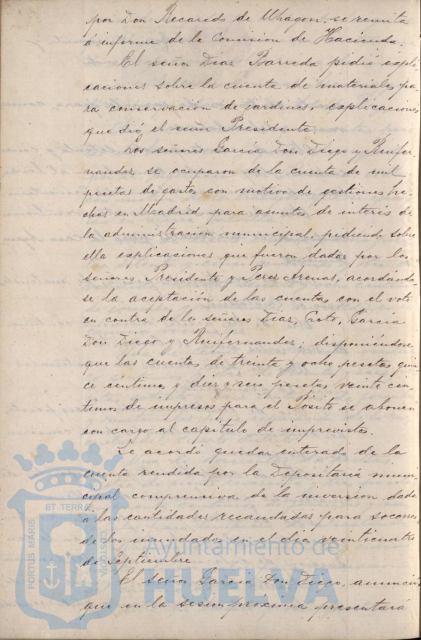 por Don Recaredo de Uhagon, se remita
á informe de la Comision de Hacienda.
El señor Diaz Barreda pidió expli
caciones sobre la cuenta de materiales pa
ra conservacion de jardines, explicaciones
que dió el señor Presidente.
Los señores Garcia Don Diego y Ruifer-
nandez se ocuparon de la cuenta de mil
pesetas de gastos con motivo de gestiones he
chas en Madrid para asuntos de interés de
la administracion municipal, pidiendo sobre
ella explicaciones que fueron dadas por los
señores Presidente y Perez Arenas, acordando
se la aceptación de las cuentas con el voto
en contra de los señores Diaz, Garcia
Don Diego y Ruifernandez; disponiéndose
que las cuentas de treinta y ocho pesetas quin
ce centimos y diez y seis pesetas veinte cen
timos de impresos para el Pósito se abonen
con cargo al capitulo de imprevistos.
Se acordó quedar enterado de la
cuenta rendida por la Depositaría muni
cipal comprensiva de la inversion dada
a las cantidades recaudadas para socorro
de los inundados en el dia veinticuatro
de Septiembre.
El señor Garcia Don Diego, anunció
que en la sesion proxima presentará
PORTUS MARIS
ET TERRAE
CUSTODIA
Ayuntamiento de
HUELVA